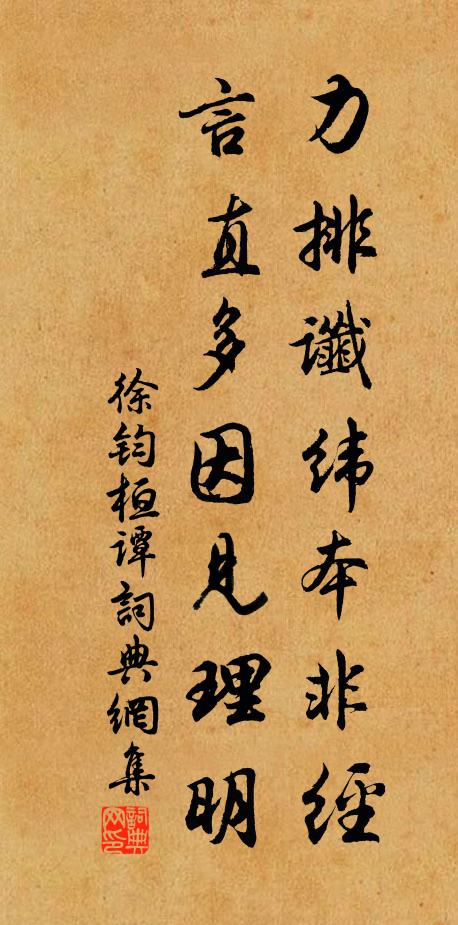 力排讖緯本非經
言直多因見理明
徐钧桓谭詞典網集
詞典网印